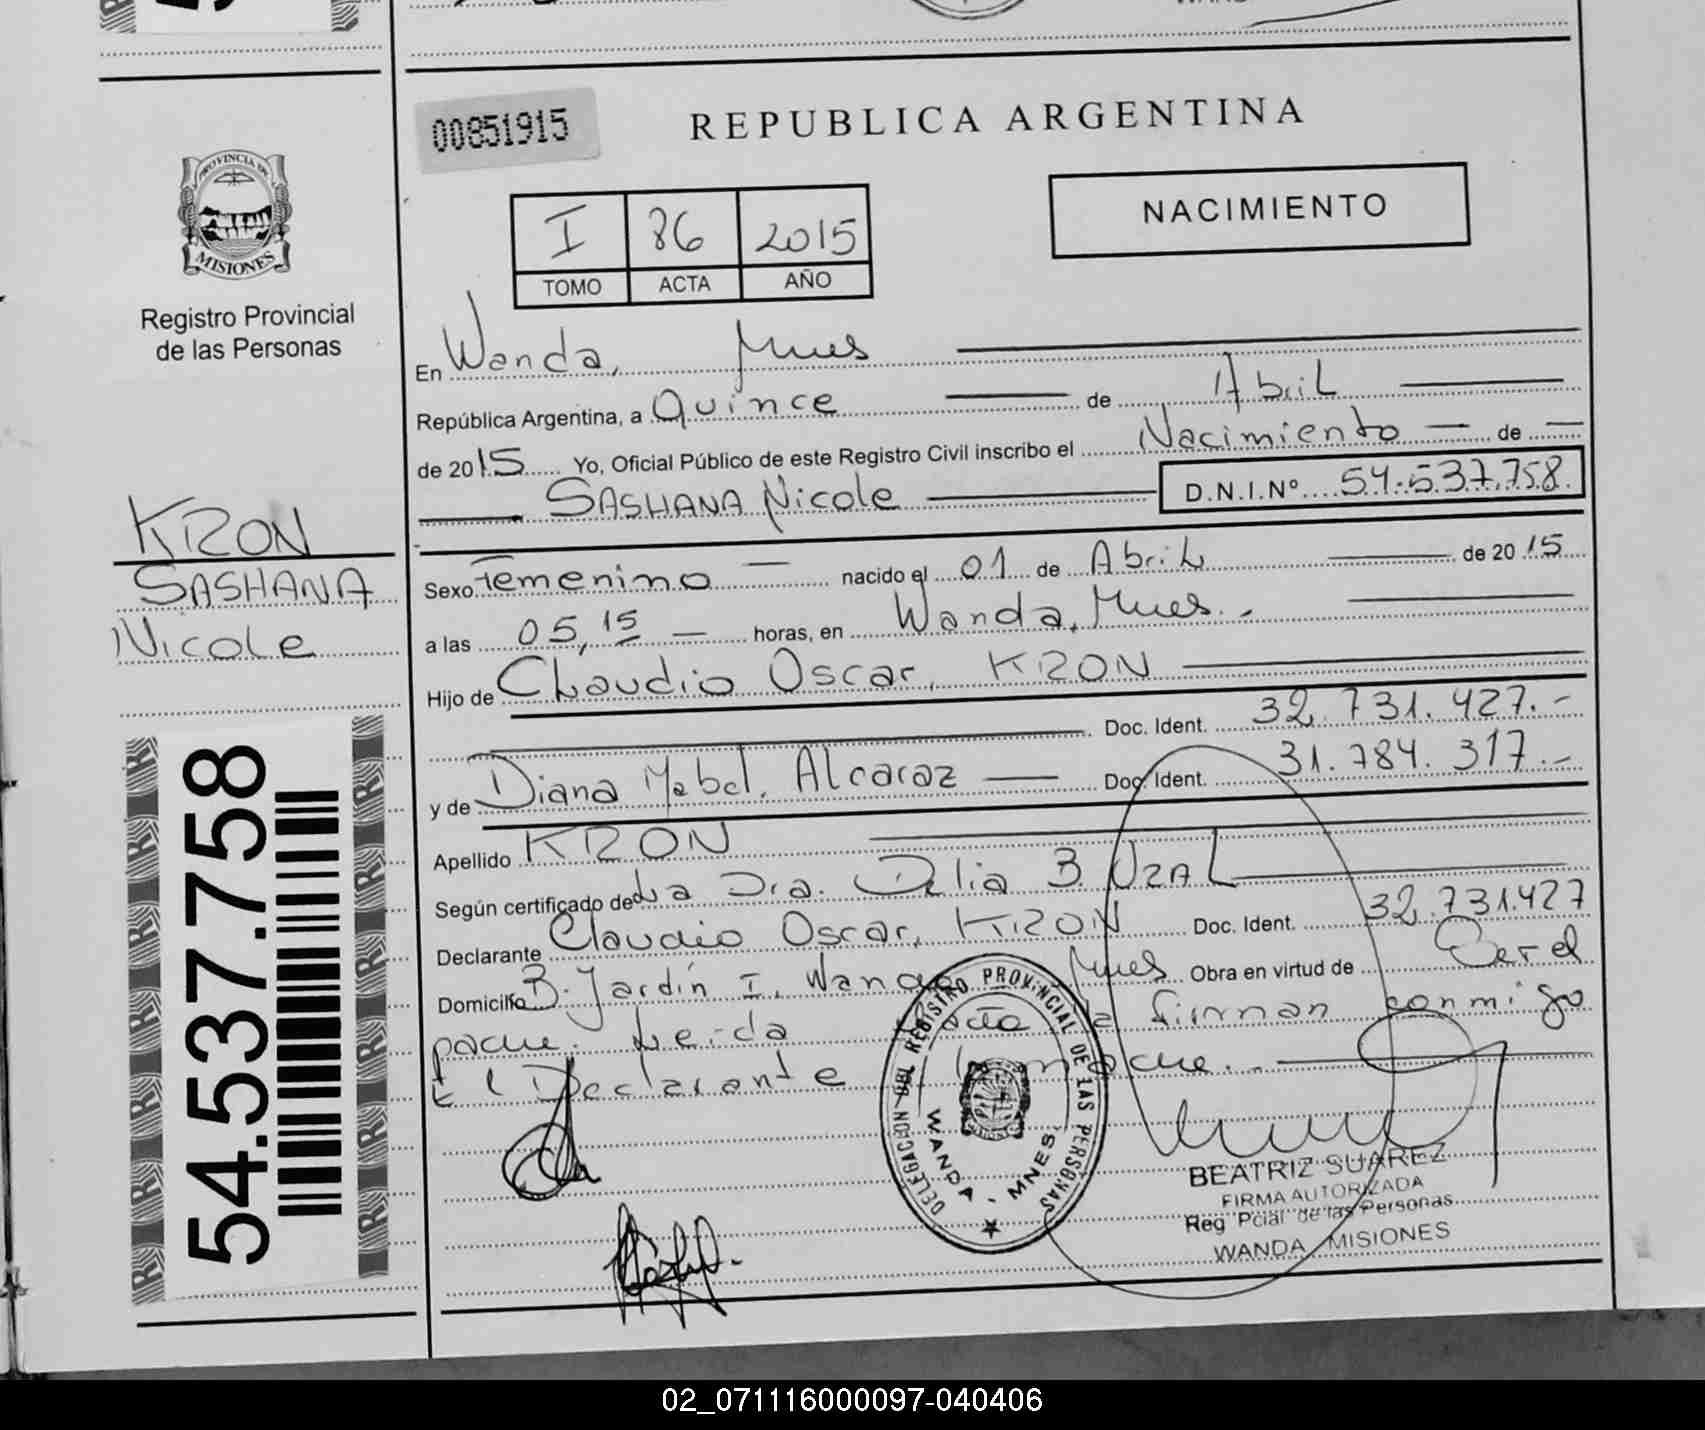 00851915
REPUBLICA ARGENTINA
NACIMIENTO
I 86 2015
TOMO ACTA AÑO
PROVINCIA DE
MISIONES
Registro Provincial
de las Personas
En Wanda, Mnes
República Argentina, a Quince de Abril
de 2015 Yo, Oficial Público de este Registro Civil inscribo el Nacimiento de
SASHANA Nicole D.N.I.Nº 54.537.758.
KRON
SASHANA
Nicole
Sexo Femenino nacido el 01 de Abril de 2015
a las 05,15 horas, en Wanda, Mnes.
Hijo de Claudio Oscar, KRON
Doc. Ident. 32.731.427.-
y de Diana Mabel, Alcaraz Doc. Ident. 31.784.317.-
Apellido KRON
Según certificado de La Dra. Delia B. UZAL
Declarante Claudio Oscar, KRON Doc. Ident. 32.731.427
Domicilio B. Jardín I, Wanda Mnes Obra en virtud de Ser el
padre. Leida acta la firman conmigo
El Declarante madre.
54.537.758
DELEGACION DEL REGISTRO PROVINCIAL DE LAS PERSONAS
WANDA - MNES.
BEATRIZ SUAREZ
FIRMA AUTORIZADA
Reg Pcial de las Personas
WANDA MISIONES
02_071116000097-040406